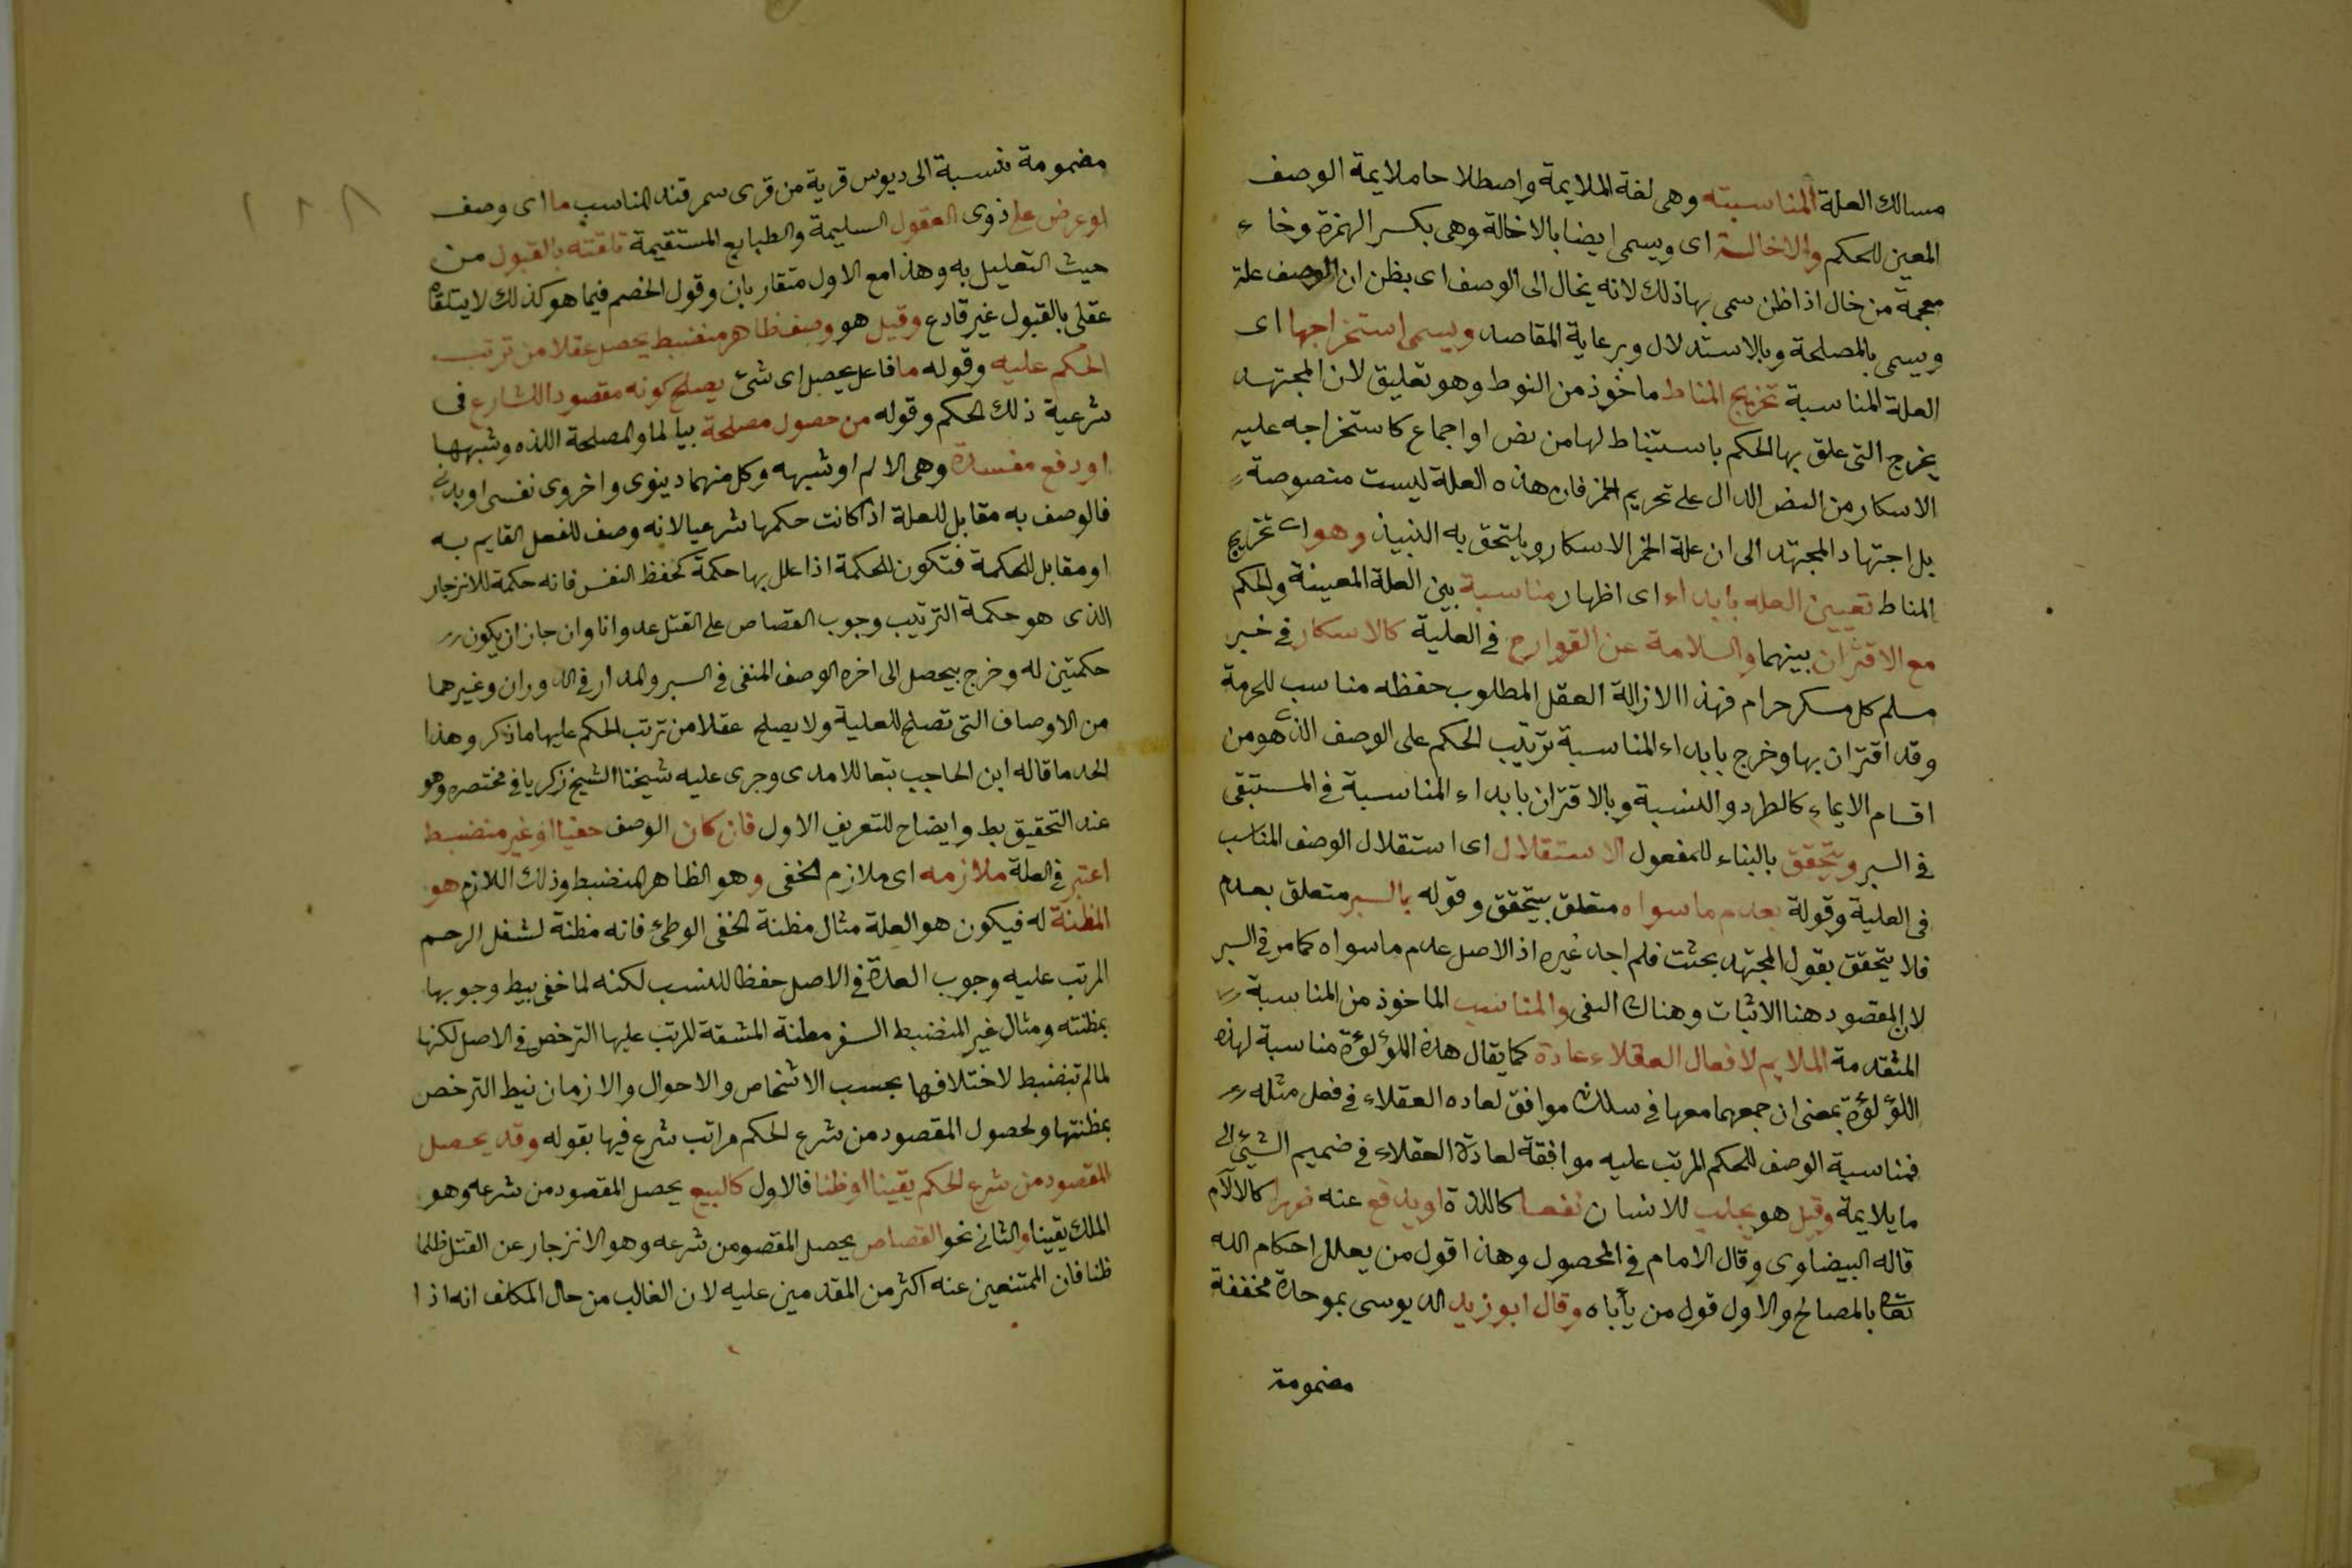 مسالك العلة المناسبته وهى لغة الملايمة واصطلاحا ملايمة الوصف
المعين للحكم والاخالة اى ويسمى ايضا بالاخالة وهى بكسر الهمزة وخاء
معجمة من خال اذا ظن سمى بها ذلك لانه يخال الى الوصف اى يظن ان الوصف علة
ويسمى بالمصلحة وبالاستدلال وبرعاية المقاصد ويسمى استخراجها اى
العلة المناسبة تخريج المناط ماخوذ من النوط وهو تعليق لان المجتهد
يخرج التى علق بها الحكم باستنباط لها من نص او اجماع كاستخراجه عليه
الاسكار من النص الدال على تحريم الخمر فان هذه العلة ليست منصوصة
بل اجتهاد المجتهد الى ان علة الخمر الاسكار ويلتحق به النبيذ وهو اى تخريج
المناط تعيين العله بابداء اى اظهار مناسبة بين العلة المعينة والحكم
مع الاقتران بينهما والسلامة عن القوادح فى العلية كالاسكار فى خبر
مسلم كل مسكر حرام فهذا الازالة العقل المطلوب حفظه مناسب للحرمة
وقد اقتران بها وخرج بابداء المناسبة ترتيب الحكم على الوصف الذى هو من
اقسام الايماء كالطرد والنسبة وبالاقتران بابداء المناسبة فى المستبقى
فى السبر ويتحقق بالبناء للمفعول الاستقلال اى استقلال الوصف المناسب
فى العلية وقولة بعدم ما سواه متعلق بيتحقق وقوله بالسبر متعلق بعدم
فلا يتحقق بقول المجتهد بحثت فلم اجد غيره اذ الاصل عدم ما سواه كما مر فى السبر
لان المقصود هنا الاثبات وهناك النفى والمناسب الماخوذ من المناسبة
المتقدمة الملايم لافعال العقلاء عادة كما يقال هذه اللؤلؤة مناسبة لهذه
اللؤلؤة بمعنى ان جمعهما معها فى سلك موافق لعاده العقلاء فى فعل مثله
فمناسبة الوصف للحكم المرتب عليه موافقة لعادة العقلاء فى ضميم الشيئ الى
ما يلايمة وقيل هو يجلب للانسان نفعا كاللذة او يدفع عنه ضررا كالالآم
قاله البيضاوى وقال الامام فى المحصول وهذا قول من يعلل احكام الله
تعا بالمصالح والاول قول من يأباه وقال ابو زيد الديوسى بموحدة مخففة
مضمومة
مضمومة نسبة الى ديوس قرية من قرى سمرقند المناسب ما اى وصف
لو عرض على ذوى العقول السليمة والطبايع المستقيمة تلقته بالقبول من
حيث التعليل به وهذا مع الاول متقاربان وقول الخصم فيما هو كذلك لا يتلقاه
عقلى بالقبول غير قادع وقيل هو وصف ظاهر منضبط يحصل عقلا من ترتب
الحكم عليه وقوله ما فاعل يحصل اى شئ يصلح كونه مقصود الشارع فى
شرعية ذلك الحكم وقوله من حصول مصلحة بيا لما والمصلحة اللذه وشبهها
او دفع مفسدة وهى الالم او شبهه وكل منهما دينوى واخروى نفسى او بدنى
فالوصف به مقابل للعلة اذا كانت حكمها شرعيا لانه وصف للفعل القايم به
او مقابل للحكمة فتكون الحكمة اذا علل بها حكمة كحفظ النفس فانه حكمة للانزجار
الذى هو حكمة الترتيب وجوب القصاص على القتل عدوانا وان جاز ان يكون
حكمتين له وخرج بيحصل الى اخره الوصف المنفى فى السبر والمدار فى الدوران وغيرهما
من الاوصاف التى تصلح للعلية ولا يصلح عقلا من ترتب الحكم عليها ما ذكر وهذا
الحد ما قاله ابن الحاجب تبعا للامدى وجرى عليه شيخنا الشيخ زكريا فى مختصره وهو
عند التحقيق بط وايضاح للتعريف الاول فان كان الوصف خفيا او غير منضبط
اعتبر فى العلة ملازمه اى ملازم الخفى وهو الظاهر المنضبط وذلك اللازم هو
المظنة له فيكون هو العلة مثال مظنة الخفى الوطئ فانه مظنة لشغل الرحم
المرتب عليه وجوب العدة فى الاصل حفظا للنسب لكنه لما خفى بيط وجوبها
بمظنته ومثال غير المنضبط السفر مظنة المشقة المرتب عليها الترخص فى الاصل لكنها
لما لم تنضبط لاختلافها بحسب الاشخاص والاحوال والازمان نيط الترخص
بمظنتها ولحصول المقصود من شرع الحكم مراتب شرع فيها بقوله وقد يحصل
المقصود من شرع الحكم يقينا او ظنا فالاول كالبيع يحصل المقصود من شرعه وهو
الملك يقينا والثانى نحو القصاص يحصل المقصو من شرعه وهو الانزجار عن القتل ظلما
ظنا فان الممتنعين عنه اكثر من المقدمين عليه لان الغالب من حال المكلف انه اذا